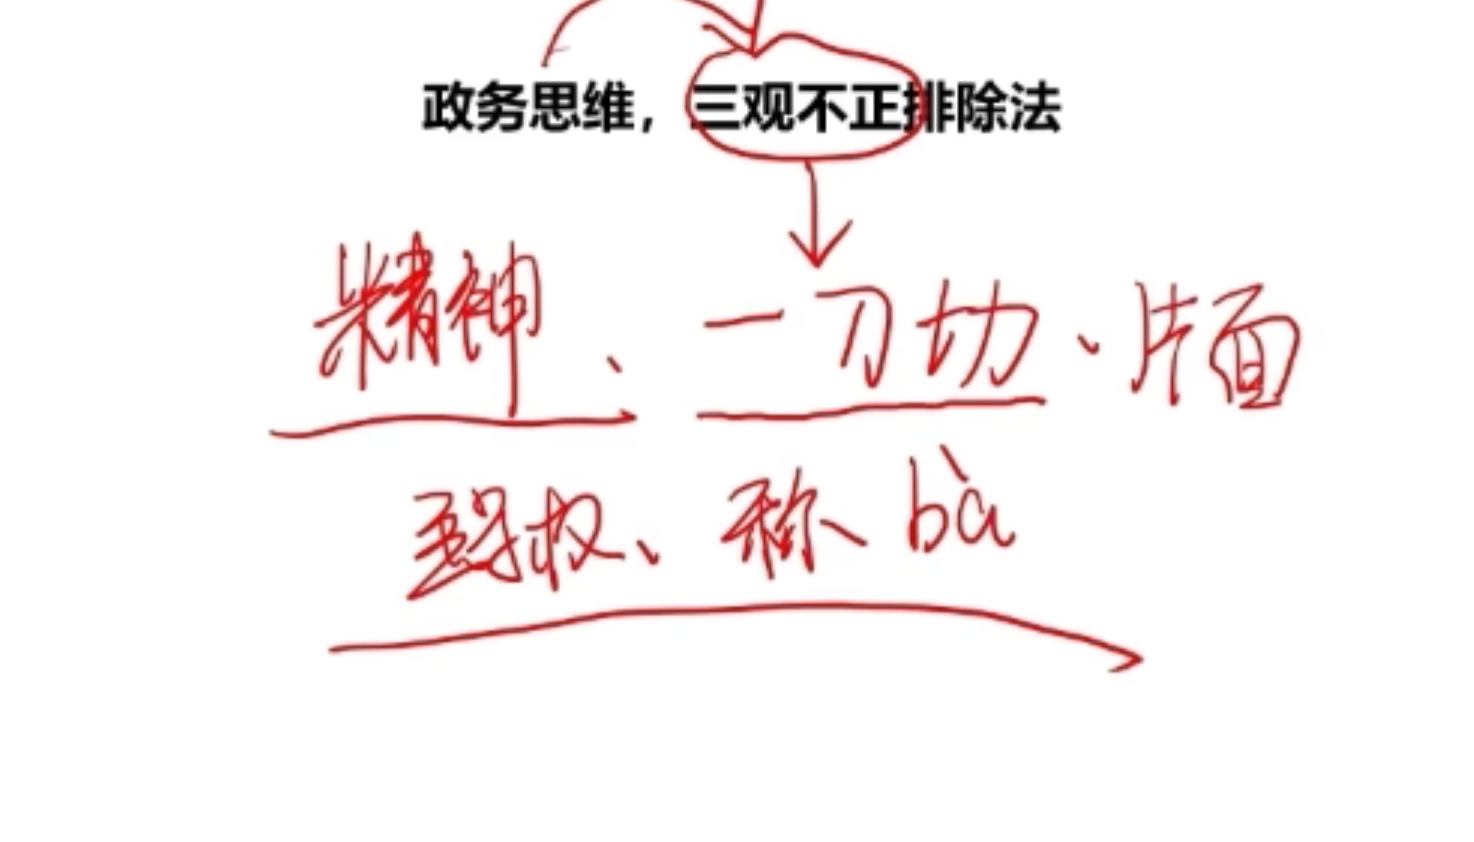 政务思维，三观不正排除法
精神、一刀切、片面
强权、称bà